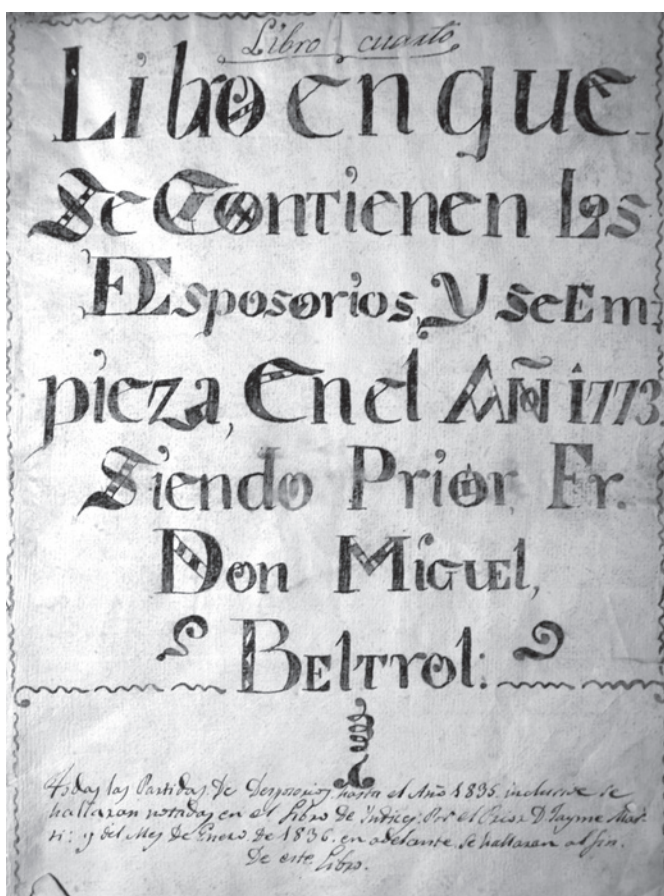 Libro cuarto,
Libro en que
Se Contienen los
DEsposorios, Y se Em=
pieza, En el Añ 1773
Siendo Prior, Fr.
Don Miguel,
Beltrol:
Todas las Partidas de Desposorios hasta el Año 1835 inclusive se
hallaran notadas en el Libro de Indices: Por el Prior D. Jayme Mar-
ti: y del Mes de Enero de 1836 en adelante se hallaran al fin.
De este Libro.